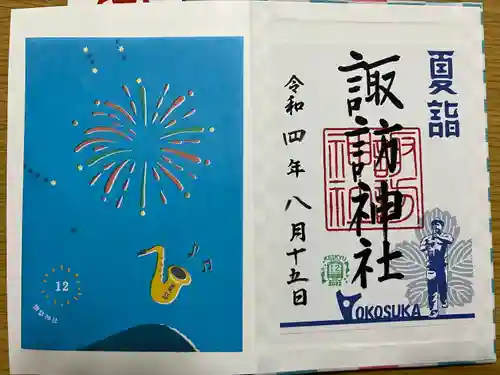 夏詣
諏訪神社
令和四年八月十五日
KEIKYU
2022
YOKOSUKA
12